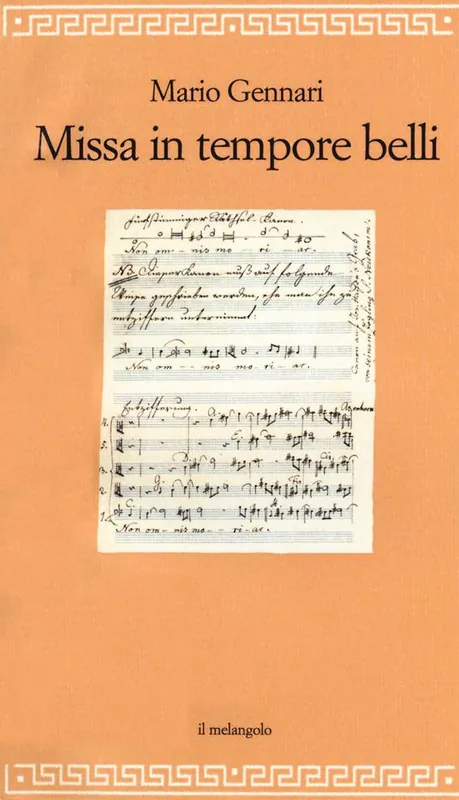 Mario Gennari
Missa in tempore belli
Fünfstimmiger Räthsel-Canon.
Non om- nis mo- ri- ar.
NB. Dieser Canon muß auf folgende
Weise geschrieben werden, ehe man ihn zu
entziffern unternimmt:
Non om- - nis mo- ri- ar.
Entzifferung.
4.
5.
3.
2
1.
Non om- nis mo- ri- ar.
Canon auf
von seinem Zögling
il melangolo